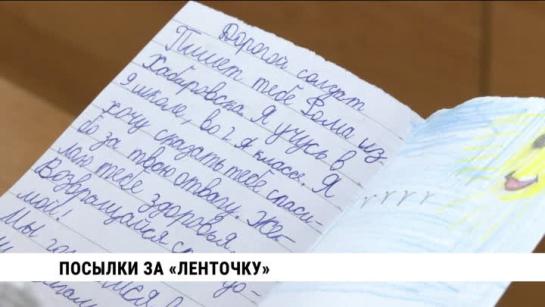 Дорогой солдат
Пишет тебе Рома из
Хабаровска. Я учусь в
школе, во 2 классе. Я
хочу сказать тебе спаси-
бо за твою отвагу. Же-
лаю тебе здоровья.
Возвращайся
мой!
Мы
ПОСЫЛКИ ЗА «ЛЕНТОЧКУ»